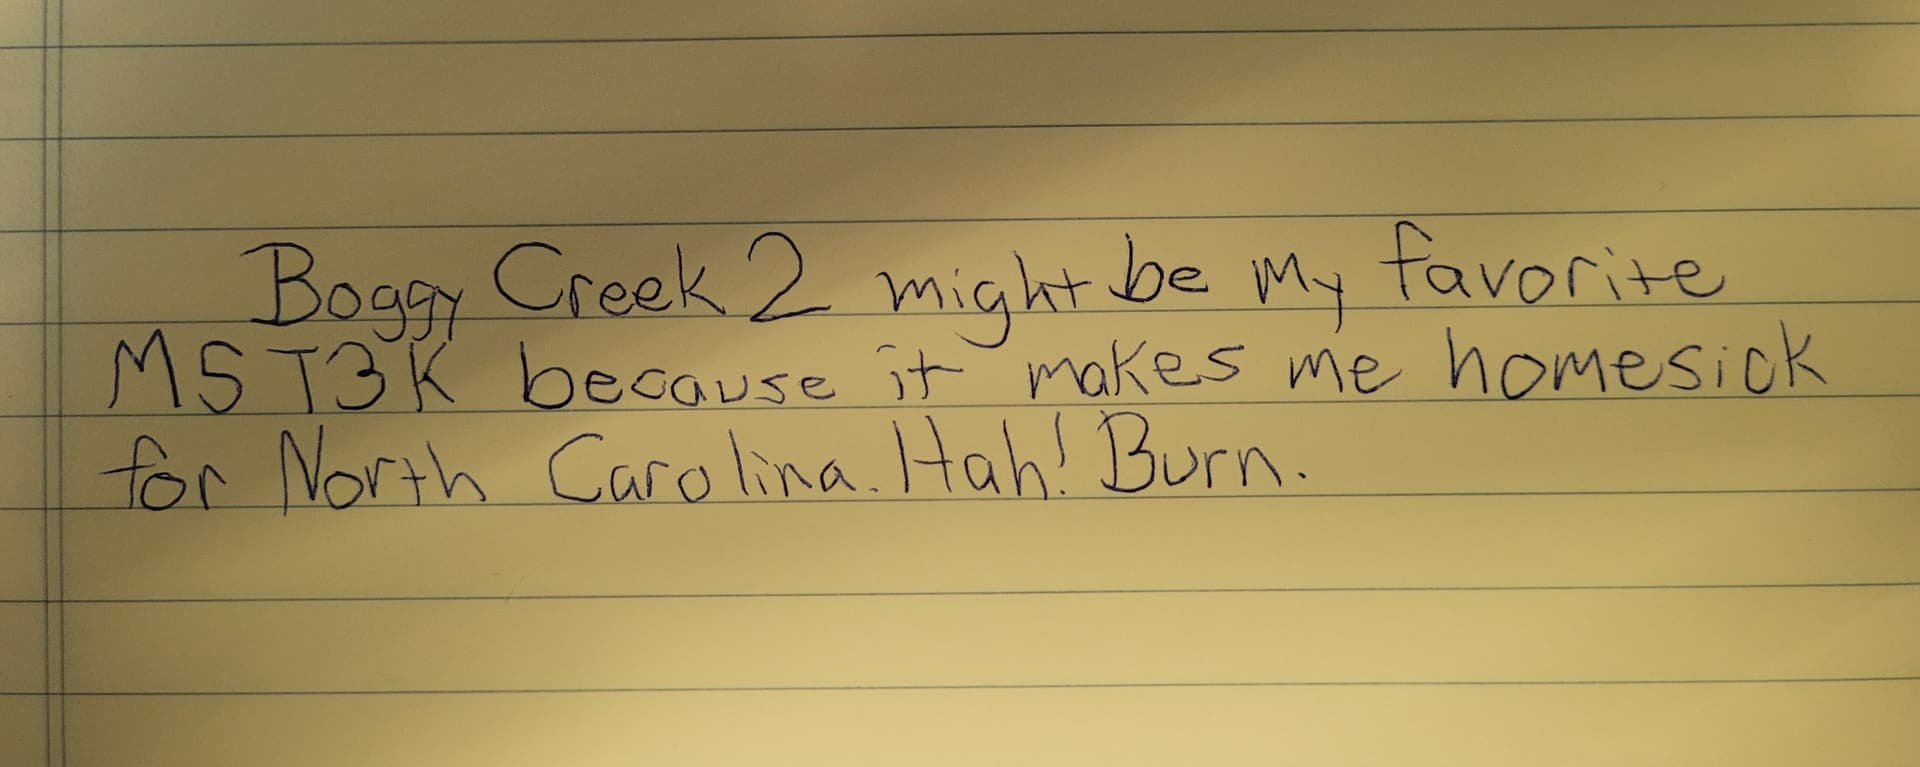 Boggy Creek 2 might be my favorite
MST3K because it makes me homesick
for North Carolina. Hah! Burn.